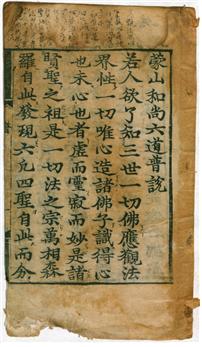 蒙山和尚六道普說
若人欲了知三世一切佛應觀法
界性一切唯心造諸佛子識得心
也未心也者虛而靈寂而妙是諸
賢聖之祖是一切法之宗萬相森
羅自此發現六凡四聖自此而分